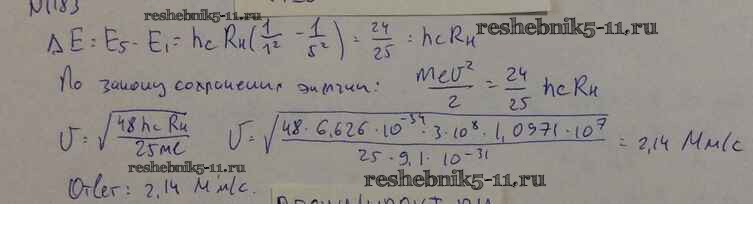 N(183)
reshebnik5-11.ru
reshebnik5-11.ru
ΔE = E₅ - E₁ = hc Rн (1/1² - 1/5²) = 24/25 · hc Rн
По закону сохранения энергии: mеv²/2 = 24/25 hc Rн
v = √(48 hc Rн / 25 mе) v = √(48 · 6,626 · 10⁻³⁴ · 3 · 10⁸ · 1,0971 · 10⁷ / 25 · 9,1 · 10⁻³¹) = 2,14 Мм/с
reshebnik5-11.ru
Ответ: 2,14 Мм/с.
reshebnik5-11.ru